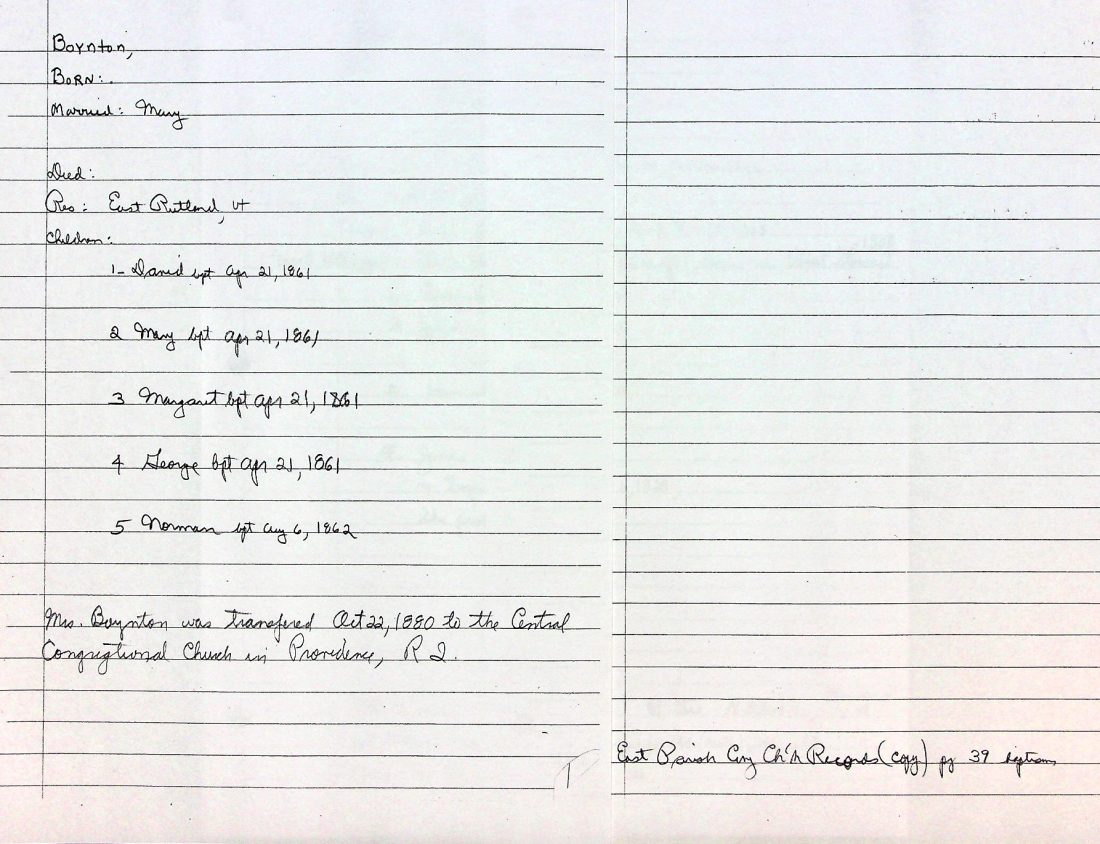 Boynton,
BORN:.
Married: Mary
Died:
Res: East Rutland, Vt
Children:
1- David bpt Apr 21, 1861
2 Mary bpt Apr 21, 1861
3 Margaret bpt Apr 21, 1861
4 George bpt Apr 21, 1861
5 Norman bpt Aug 6, 1862
Mrs. Boynton was transfered Oct 22, 1880 to the Central
Congregtional Church in Providence, R I.
1
East Parish Cong Ch'h Records (copy) pg 39 baptisms